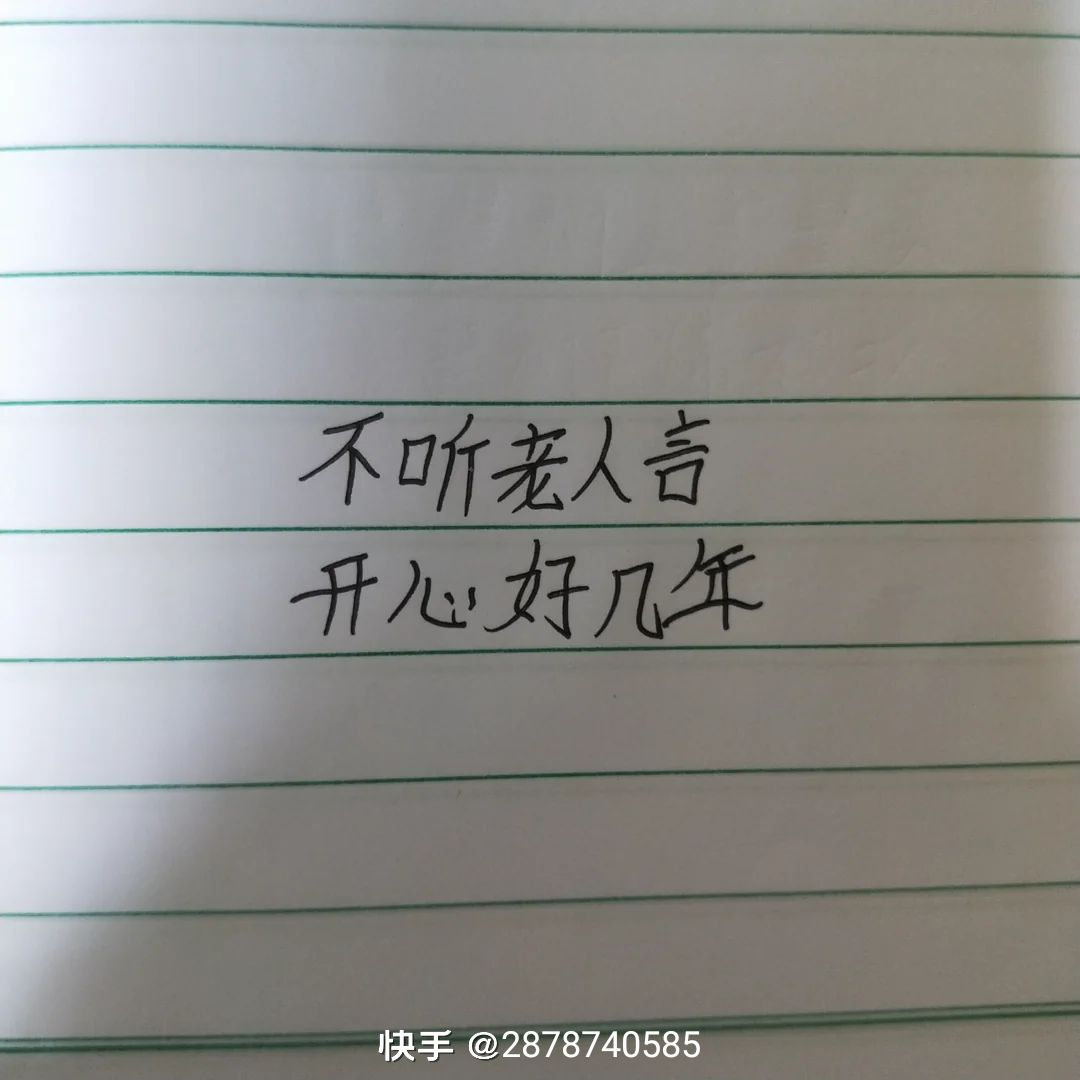 不听老人言
开心好几年
快手 @2878740585